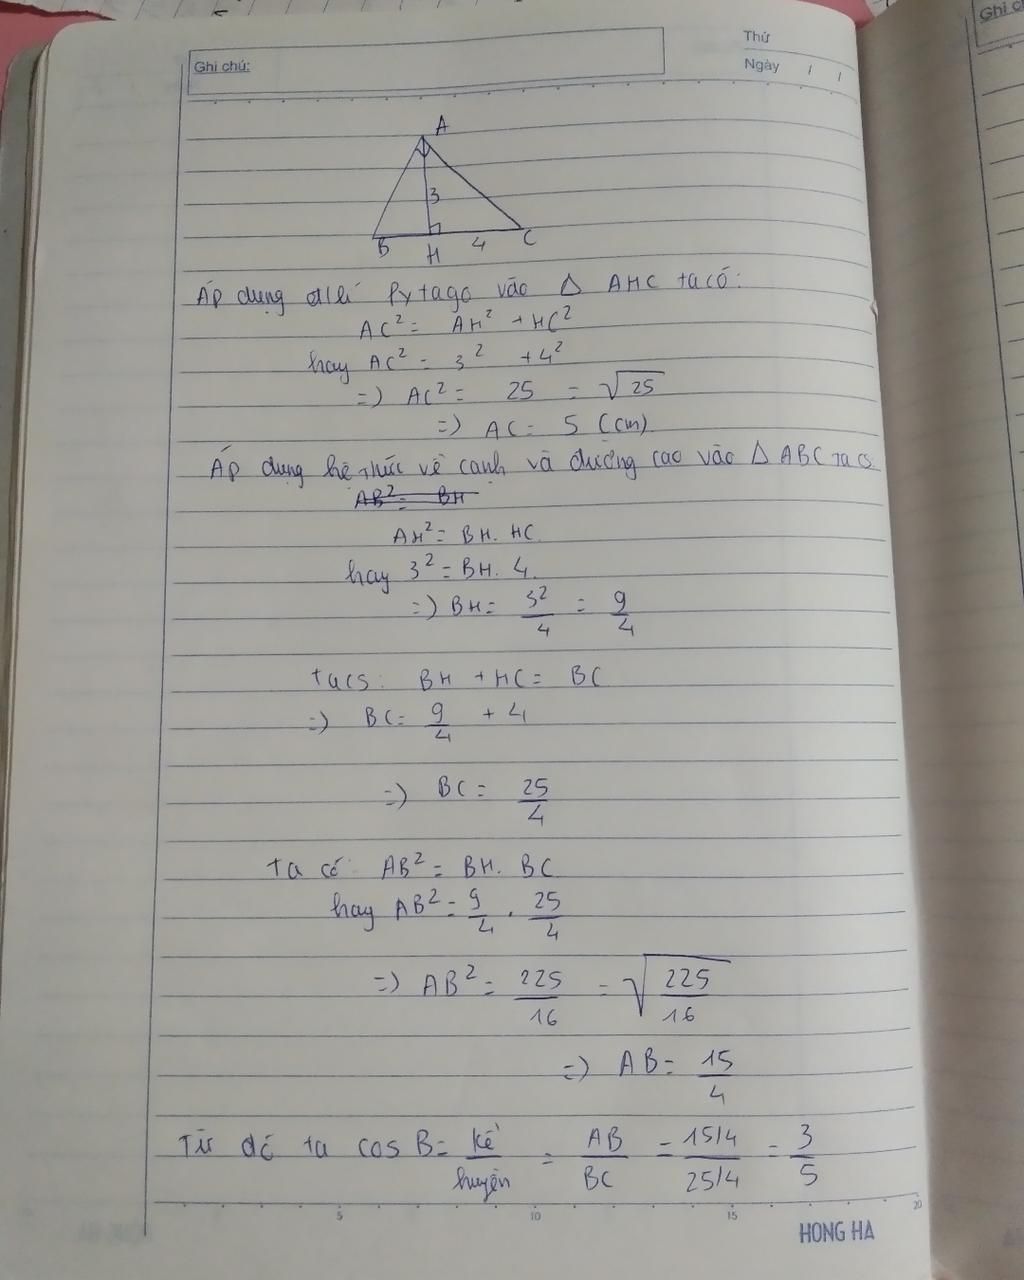 Ghi chú:
Thứ
Ngày / /
Ghi c
A
3
B H 4 C
Áp dụng đlí Pytago vào Δ AHC ta có:
AC² = AH² + HC²
hay AC² = 3² + 4²
=) AC² = 25 = √25
=) AC = 5 (cm)
Áp dụng hệ thức về cạnh và đường cao vào Δ ABC ta cs
AB² = BH
AH² = BH. HC
hay 3² = BH. 4.
=) BH = 3²/4 = 9/4
ta cs: BH + HC = BC
=) BC = 9/4 + 4
=) BC = 25/4
ta có: AB² = BH. BC
hay AB² = 9/4 . 25/4
=) AB² = 225/16 = √225/16
=) AB = 15/4
Từ đó ta cos B = kề/huyền = AB/BC = 15/4/25/4 = 3/5
5 10 15 20
HONG HA